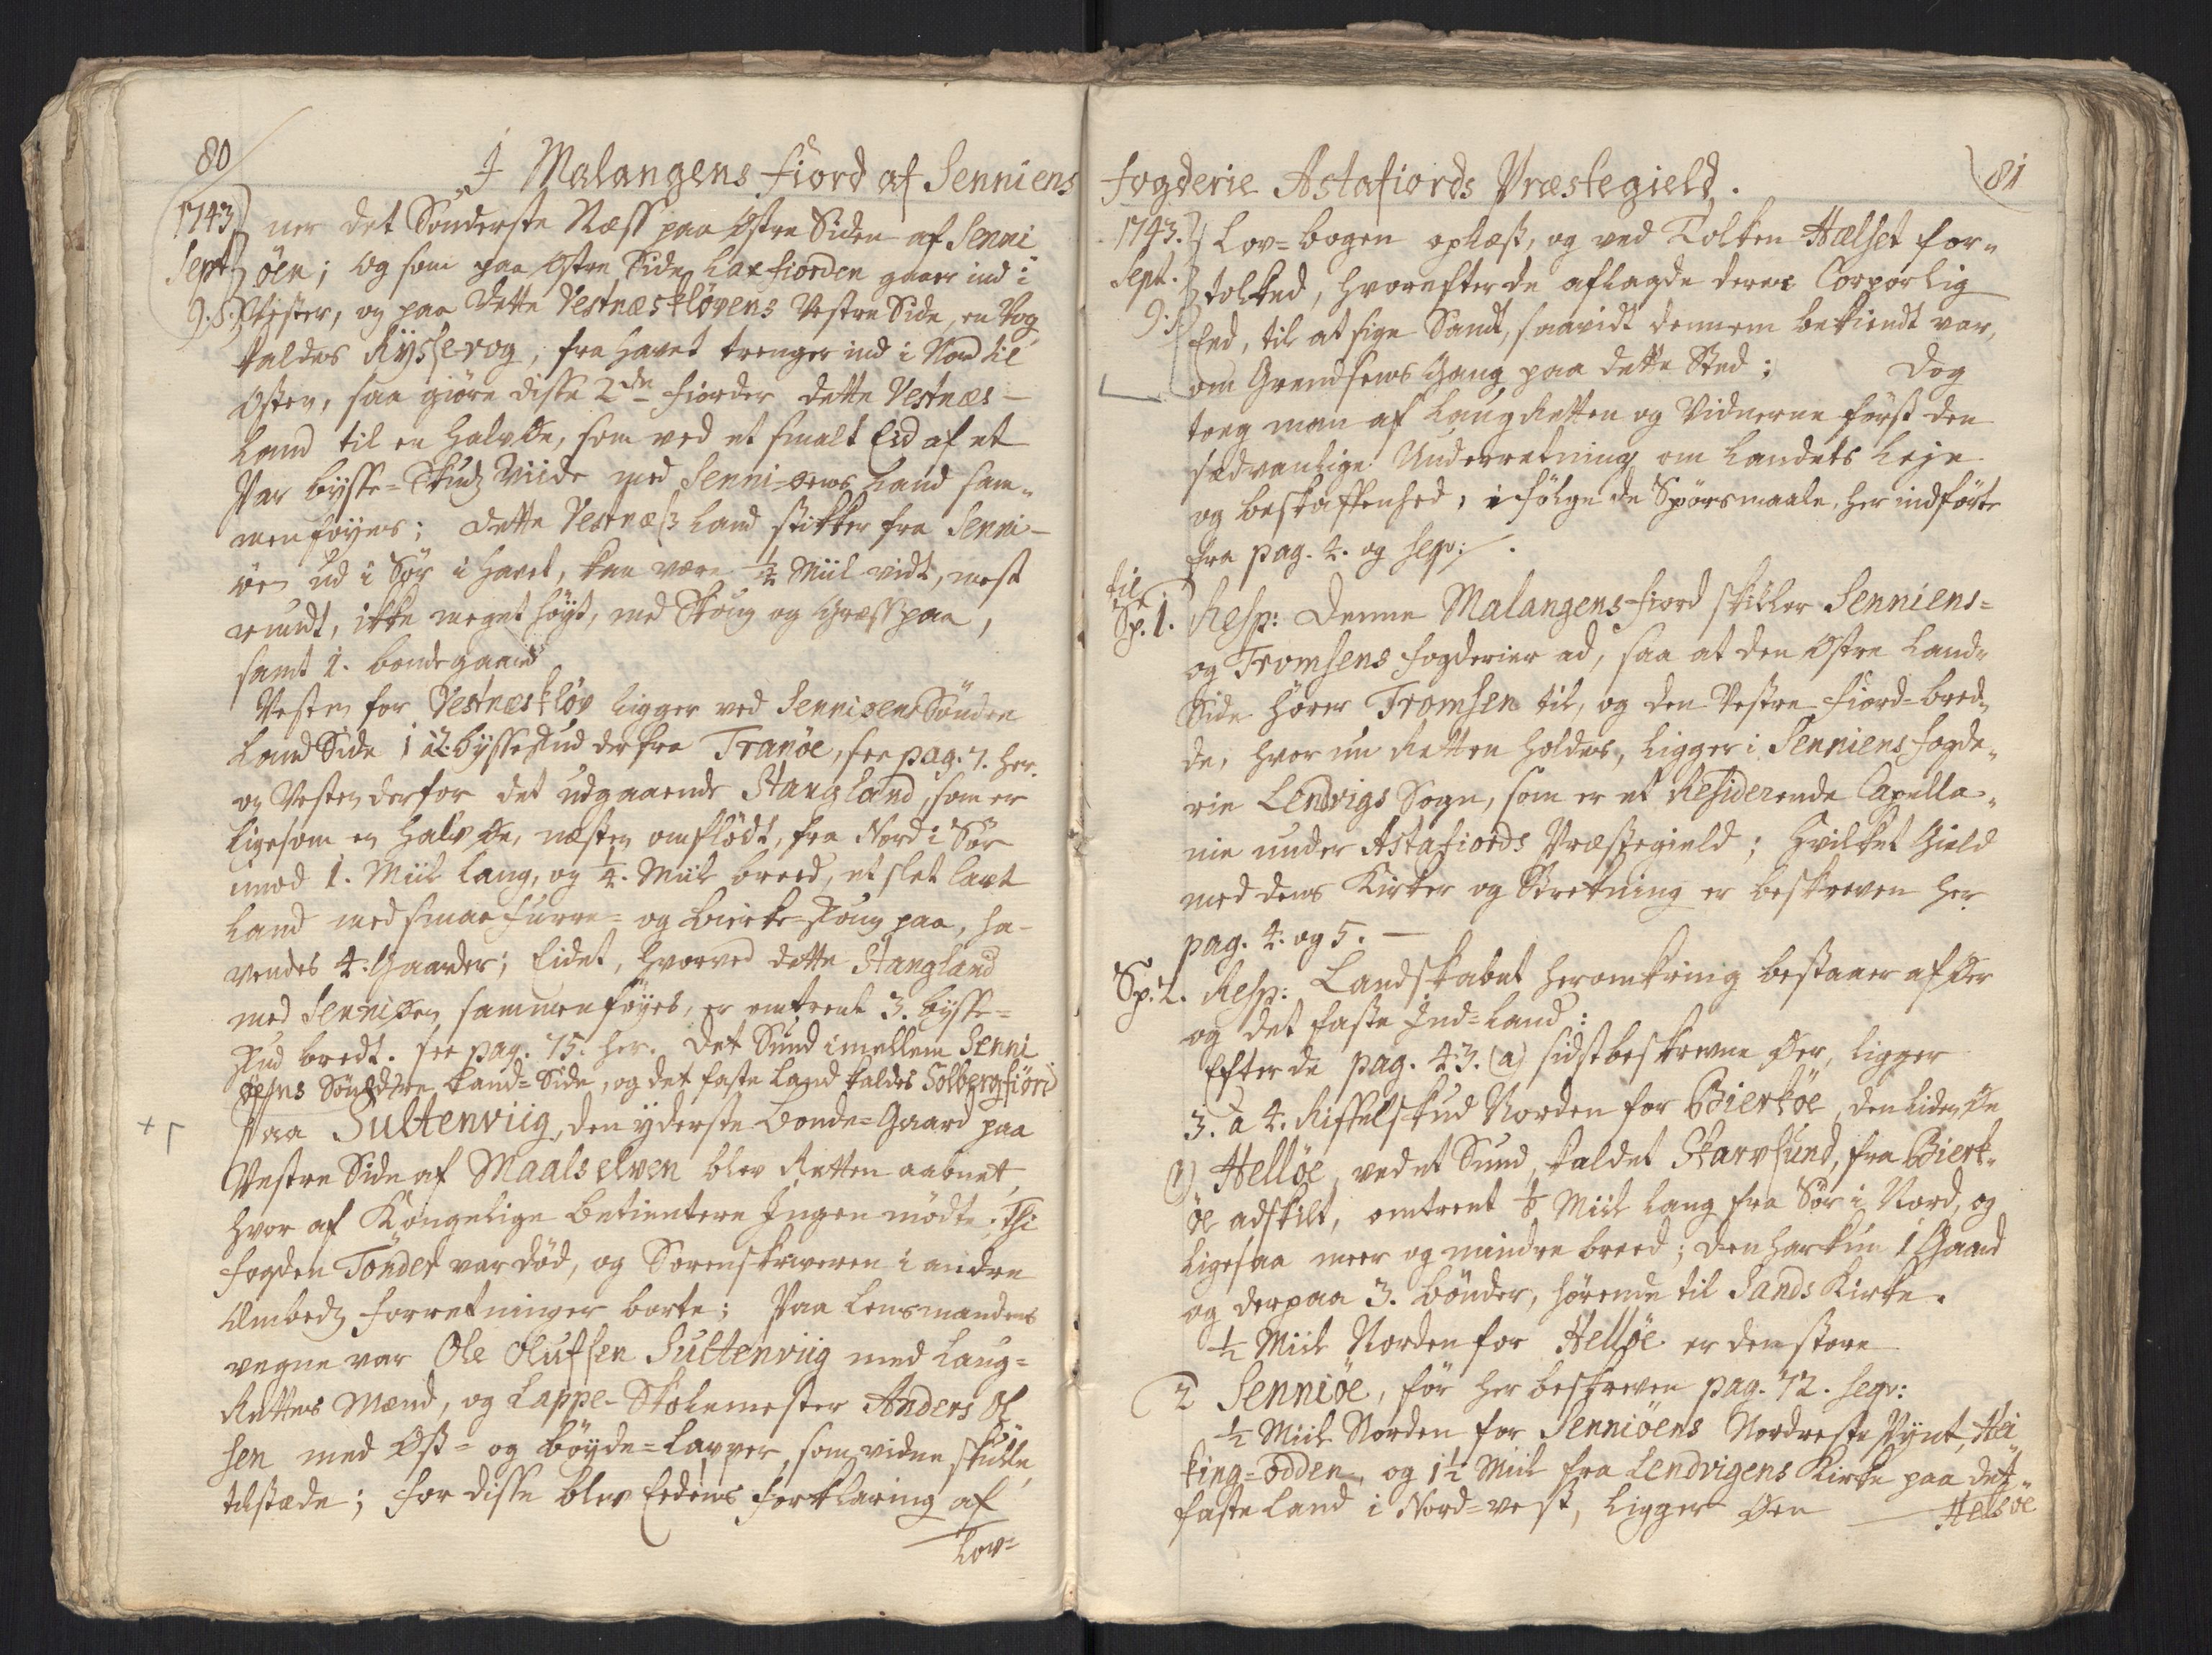 80
I Malangens fiord af Senniens
1743
Sept
9. S.
ner det Sönderste Næss paa Østre Siden af Senni
öen; og som paa Østre Side Laxfiorden gaaer ind i
Vester, og paa dette Vestnæskløvens Vestre Side, en Vog
kaldes Rysse-vog, fra Havet trenger ind i Nord til
Østen, saa giöre disse 2de fiorder dette Vestnæs-
Land til en Halv Øe, som ved et smalt Eid af et
Par bysse-Skudz Viide med Senni-øens Land sam-
menföyes; dette Vestnæss Land stikker fra Senni-
öen ud i Sör i Havet, kan være ½ Miil vidt, mest
rundt, ikke meget höyt, med Skoug og Græss paa,
samt 1. bondegaard
Vesten for Vestnæskløv ligger ved Senniøens Sönden
Land Side 1 à 2. bysseskud derfra Tranöe, see pag. 7. her.
og Vesten derfor det udgaaende Stangland, som er
ligesom en Halv Øe, næsten omflödt, fra Nord i Sör
imod 1. Miil lang, og ¼. Miil breed, et slet lavt
Land med smaa furre- og bierke-skoug paa, ha-
vendes 4. Gaarder; Eidet, hvorved dette Stangland
med Senniøen sammenföyes, er omtrent 3. bysse-
skud bredt. see pag. 75. her. Det Sund imellem Senni
øens Söndre Land-Side, og det faste Land kaldes Solbergfiord
Paa Sultenviig, den yderste bonde-Gaard paa
Vestre Side af Maalselven blev Retten aabnet,
hvor af Kongelige betientere Ingen mödte; Thi
fogden Tönder var död, og Sorenskriveren i andre
Embedz forretninger borte; Paa Lensmandens
vegne var Ole Olufsen Sultenviig med Laug-
Rettes Mænd, og Lappe-Skolemester Anders Ol
sen med Øst- og böyde-Lapper, som vidne skulle,
tilstæde; for disse blev Eedens forklaring af
Lov-
fogderie Astafiords Præstegield.
81
1743.
Sept.
9. S.
Lov-bogen oplæst, og ved Tolken Hælset for-
tolked, hvorefter de aflagde deres Corporlig
Eed, til at sige Sandt, saavidt dennem bekiendt var,
om Grendsens Gang paa dette Sted; Dog
toeg man af Laug Retten og Vidnerne först den
sædvanlige Underretning om Landets Leje
og beskaffenhed, i fölge de Spörsmaale, her indförte
fra pag. 2. og seqv:
til
Sp. 1. Resp: Denne Malangens-fiord skiller Senniens-
og Tromsens fogderier ad, saa at den Østre Land-
Side hörer Tromsen til, og den Vestre fiord-bred-
de, hvor nu Retten holdes, ligger i Senniens fogde-
rie Lendvigs Sogn, som er et Residerende Capella-
nie under Astafiords Præstegield; Hvilket Gield
med dens Kirker og Strekning er beskreven her
pag. 4. og 5.
Sp. 2. Resp: Landskabet heromkring bestaaer af Øer
og det faste Ind-Land:
Efter de pag. 43. (a) sidstbeskrevne Øer, ligger
3. à 4. Riffelskud Norden for Bierköe, den liden Øe
1) Hellöe, ved et Sund, kaldet Skarvsund, fra Bierk-
öe adskilt, omtrent ⅛ Miil lang fra Sör i Nord, og
ligesaa meer og mindre breed; den har kun 1 Gaard
og derpaa 3. bönder, hörende til Sands Kirke.
½ Miil Norden for Hellöe er den store
2 Senniöe, för her beskreven pag. 72. seqv:
½ Miil Norden for Senniöens Nordreste Pynt, Hei
king-odden, og 1½ Miil fra Lendvigens Kirke paa det
faste Land i Nord-vest, ligger Øen
Helsöe